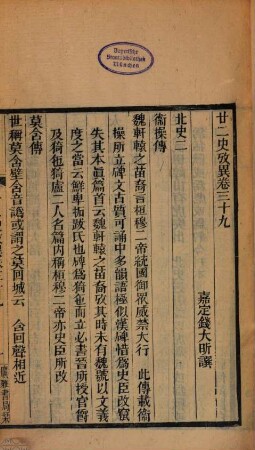 Bayerische
Staatsbibliothek
München
廿二史攷異卷三十九
嘉定錢大昕撰
北史二
衞操傳
魏軒轅之苗裔言桓穆二帝統國御衆威禁大行 此傳載衞
操所立碑文古質可誦中多韻語極似漢碑惜爲史臣改竄
失其本眞篇首云魏軒轅之苗裔攷其時未有魏號以文義
度之當云鮮卑拓跋氏也碑爲猗㐌而立必書晉所授官爵
及猗㐌猗盧二人名篇内稱桓穆二帝亦史臣所改
莫含傳
世稱莫含壁含音譌或謂之莫回城云 含回聲相近
廣雅書局栞